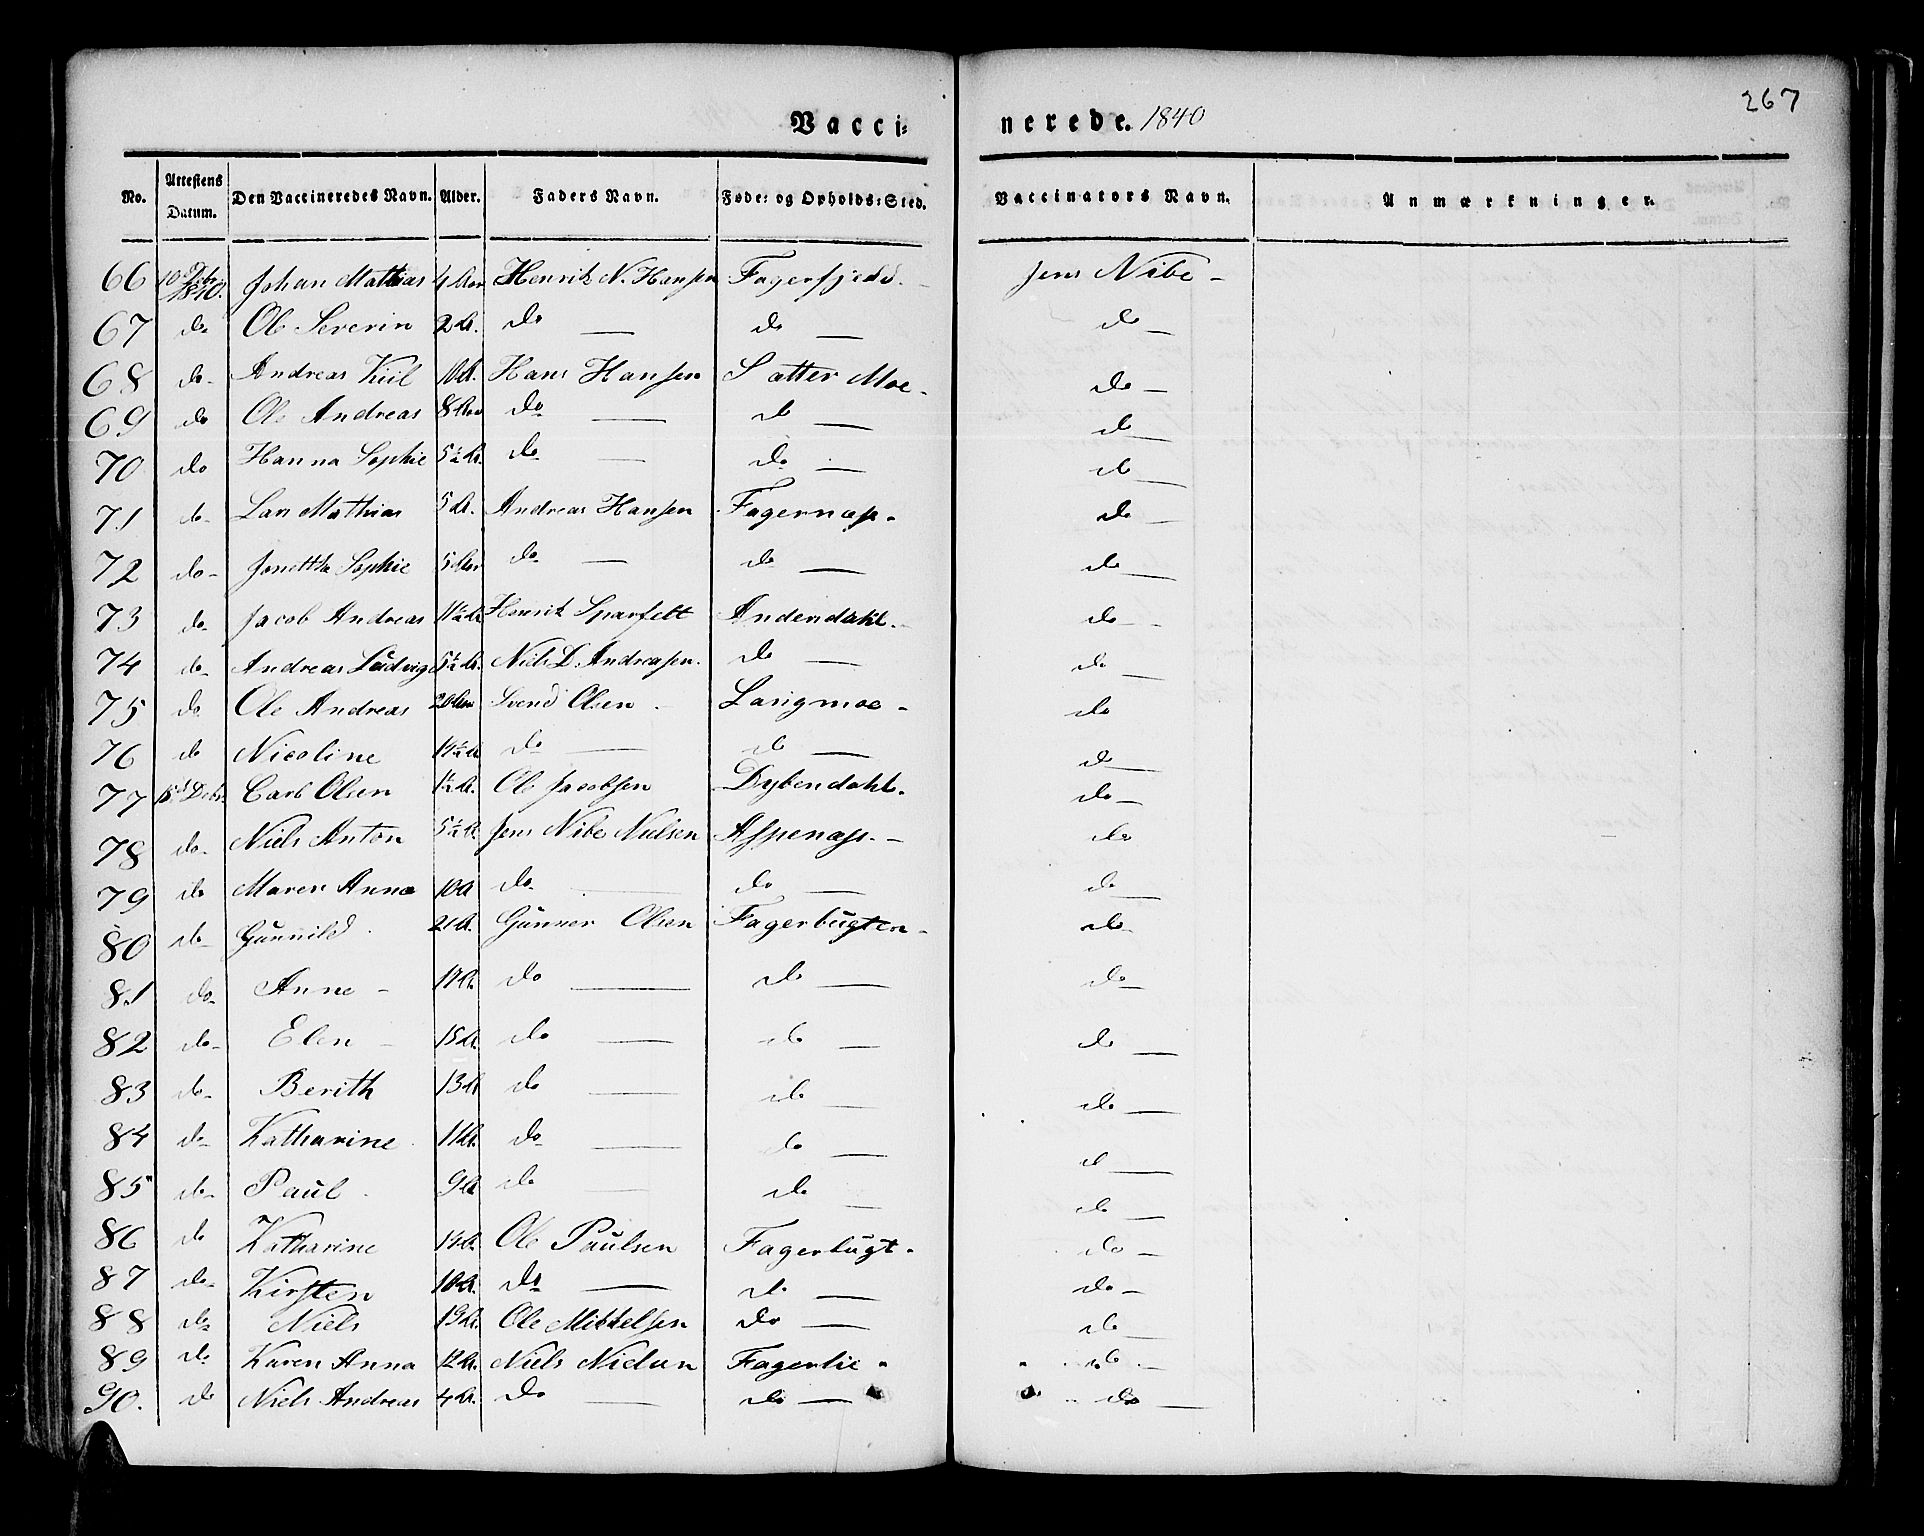 267
Vacci- nerede. 1840
No. Attestens Datum. Den Vaccineredes Navn. Alder. Faders Navn. Føde- og Opholds-Sted. Vaccinators Navn. Anmærkninger.
66 10 1840. Johan Mathias 4 Henrik N. Hansen Fagerfjeld. Jens Nibe -
67 do Ole Severin 2 A. do — do — do —
68 do- Andreas Kiil 10 A. Hans Hansen Satter Moe - do —
69 do Ole Andreas 8 do — do — do —
70 do Hanna Sophie 5½ A. do — do — do —
71 do- Lars Mathias 5 A. Andreas Hansen Fagernæs - do —
72 do- Jonettha Sophie 5 do — do — do —
73 do- Jacob Andreas 11½ A Henrik Sparfelt Andendahl. do -
74 do- Andreas Ludvig 5½ A. Niels D. Andreasen. do — do —
75 do Ole Andreas 20 Svend Olsen - Langmoe - do
76 do Nicoline 14½ A do — do — do —
77 15d Debr. Carl Olsen 1½ A. Ole Jacobsen Dybendahl. do —
78 do- Niels Anton 5½ A. Jens Nibe Nielsen Aspenæs. - do
79 do Maren Anna 10 A do — do — do —
80 do- Gunnild 21 A. Gunner Olsen Fagerbugten - do
81 do- Anne - 17 A. do — do — do —
82 do- Elen - 15 A. do — do — do —
83 do- Berith 13 A do — do — do —
84 do- Katharine 11 A. do — do — do —
85 do- Paul 9 A do — do — do —
86 do Katharine 14 A. Ole Paulsen Fagerbugt - do —
87 do- Kirsten 10 A. do — do — do —
88 do- Niels 19 A. Ole Mikkelsen do — do —
89 do Karen Anna 12 A. Niels Fagerlie - do —
90. do Niels Andreas 4 A. do — do — do —